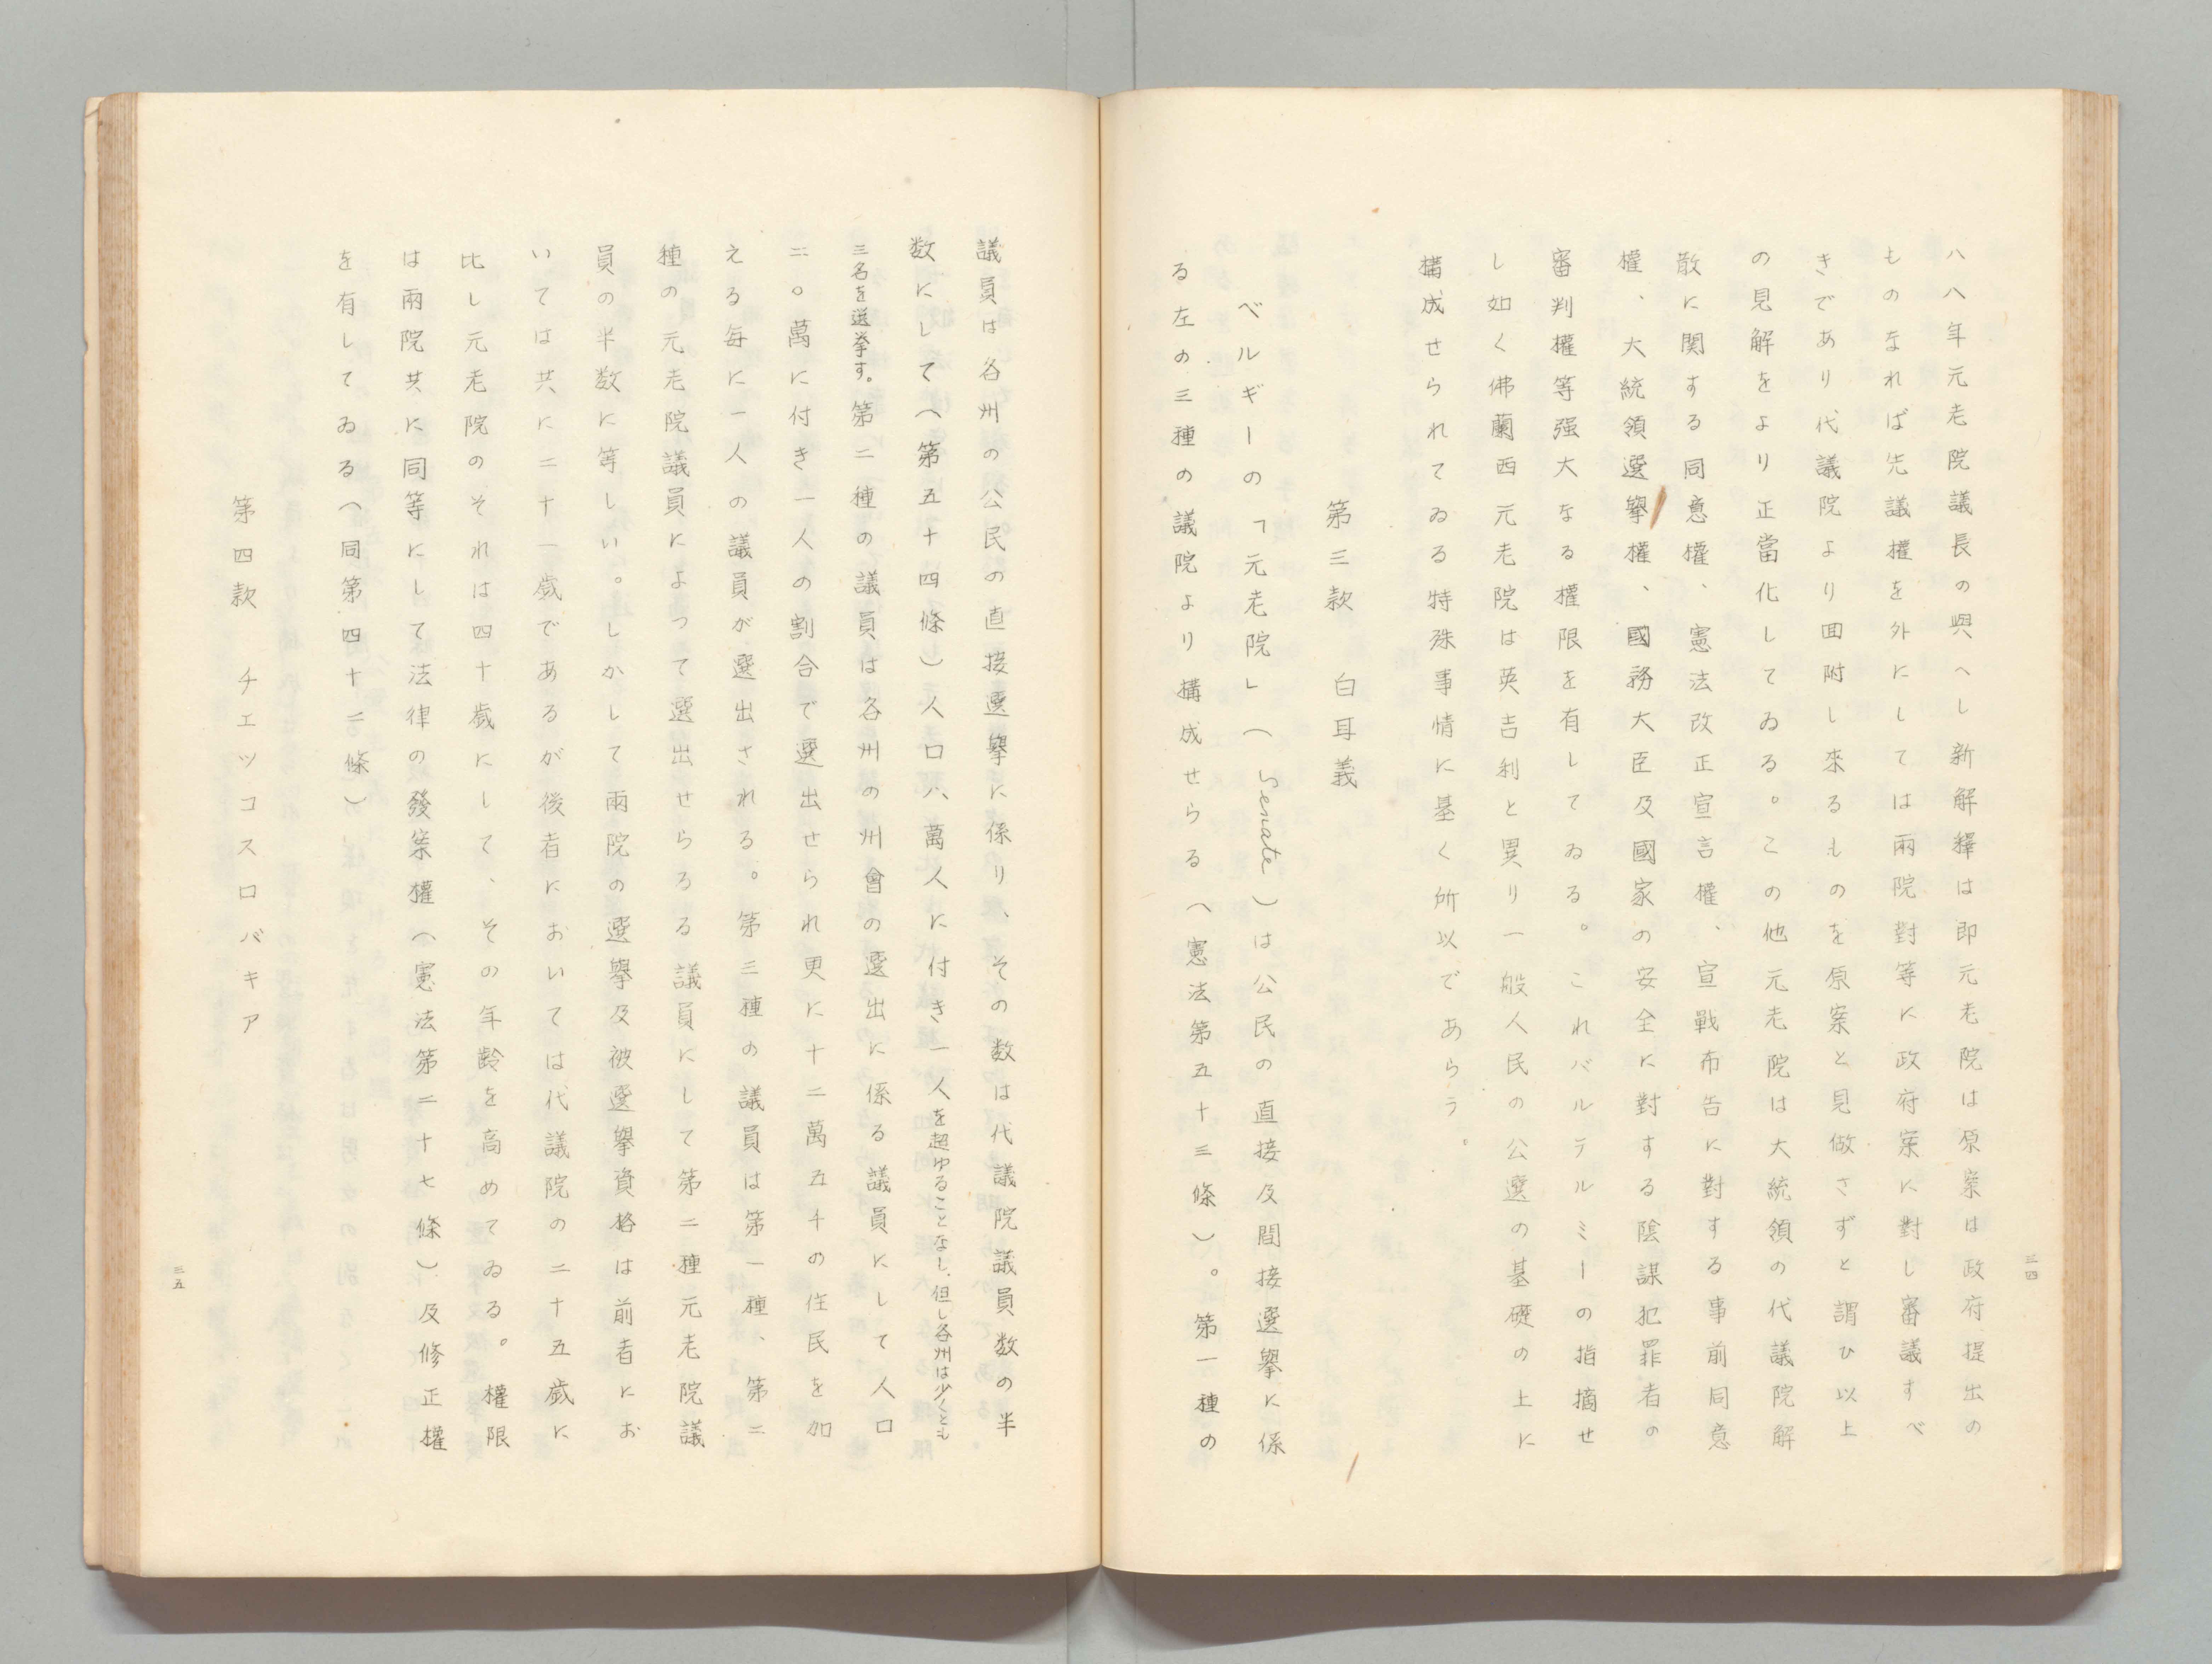 八八年元老院議長の與へし新解釋は即元老院は原案は政府提出の
ものなれば先議權を外にしては兩院對等に政府案に對し審議すべ
きであり代議院より回附し來るものを原案と見做さずと謂ひ以上
の見解をより正當化してゐる。この他元老院は大統領の代議院解
散に関する同意權、憲法改正宣言權、宣戰布告に對する事前同意
權、大統領選擧權、國務大臣及國家の安全に對する陰謀犯罪者の
審判權等强大なる權限を有してゐる。これバルテルミーの指摘せ
し如く佛蘭西元老院は英吉利と異り一般人民の公選の基礎の上に
構成せられてゐる特殊事情に基く所以であらう。
第三款　白耳義
ベルギーの「元老院」（Senate）は公民の直接及間接選擧に係
る左の三種の議院より構成せらる（憲法第五十三條）。第一種の
三四
議員は各州の公民の直接選擧に係り、その数は代議院議員数の半
数にして（第五十四條）人口八萬人に付き一人を超ゆることなし、但し各州は少くとも
三名を選挙す。第二種の議員は各州の州會の選出に係る議員にして人口
二〇萬に付き一人の割合で選出せられ更に十二萬五千の住民を加
える毎に一人の議員が選出される。第三種の議員は第一種、第二
種の元老院議員によって選出せらるる議員にして第二種元老院議
員の半数に等しい。しかして兩院の選擧及被選擧資格は前者にお
いては共に二十一歳であるが後者においては代議院の二十五歳に
比し元老院のそれは四十歳にして、その年齡を高めてゐる。權限
は兩院共に同等にして法律の發案權（憲法第二十七條）及修正權
を有してゐる（同第四十二條）
第四款　チェッコスロバキア
三五